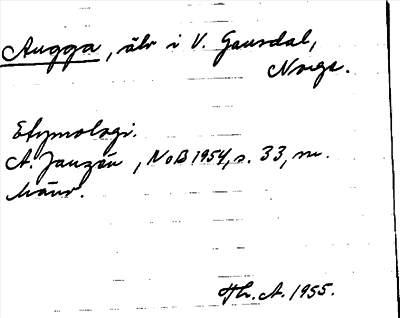 Augga, älv i V. Gausdal,
Norge.
Etymologi.
A. Janzén, NoB 1954, s. 33, m.
hänv.
Th. A. 1955.